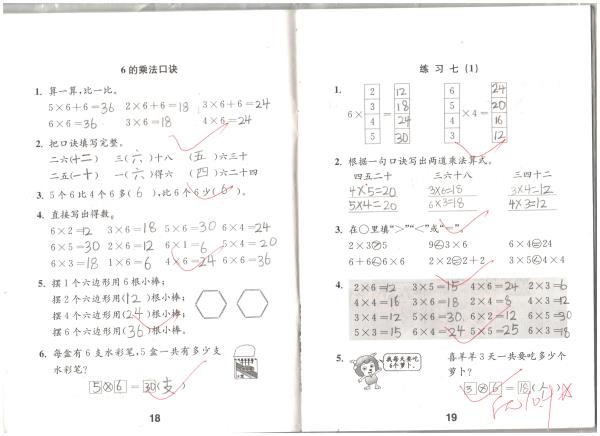 6的乘法口诀
1. 算一算,比一比。
5×6+6=36 2×6+6=18 3×6+6=24
6×6=36 3×6=18 4×6=24
2. 把口诀填写完整。
二六(十二) 三(六)十八 (五)六三十
二五(一十) 一(六)得六 (四)六二十四
3. 5个6比4个6多(6),比6个6少(6)。
4. 直接写出得数。
6×2=12 3×6=18 5×6=30 6×4=24
6×5=30 2×6=12 6×1=6 5×4=20
6×3=18 1×6=6 4×6=24 6×6=36
5. 摆1个六边形用6根小棒;
摆2个六边形用(12)根小棒;
摆4个六边形用(24)根小棒;
摆6个六边形用(36)根小棒。
6. 每盒有6支水彩笔,5盒一共有多少支
水彩笔?
5×6=30(支)
18
练习七(1)
1.
6× 2 3 4 5 = 12 18 24 30
6 5 4 3 ×4= 24 20 16 12
2. 根据一句口诀写出两道乘法算式。
四五二十 三六十八 三四十二
4×5=20 3×6=18 3×4=12
5×4=20 6×3=18 4×3=12
3. 在○里填“>”“<”或“=”。
2×3>5 9<3×6 6×4=24
6+6<6×6 2×2=2+2 3×5<4×4
4. 2×6=12 3×5=15 4×6=24 2×3=6
4×4=16 3×6=18 2×4=8 4×3=12
3×4=12 5×6=30 6×2=12 6×5=30
5×3=15 6×4=24 5×5=25 6×3=18
5. 我每天要吃
6个萝卜。
喜羊羊3天一共要吃多少个
萝卜?
3×6=18(个)
19